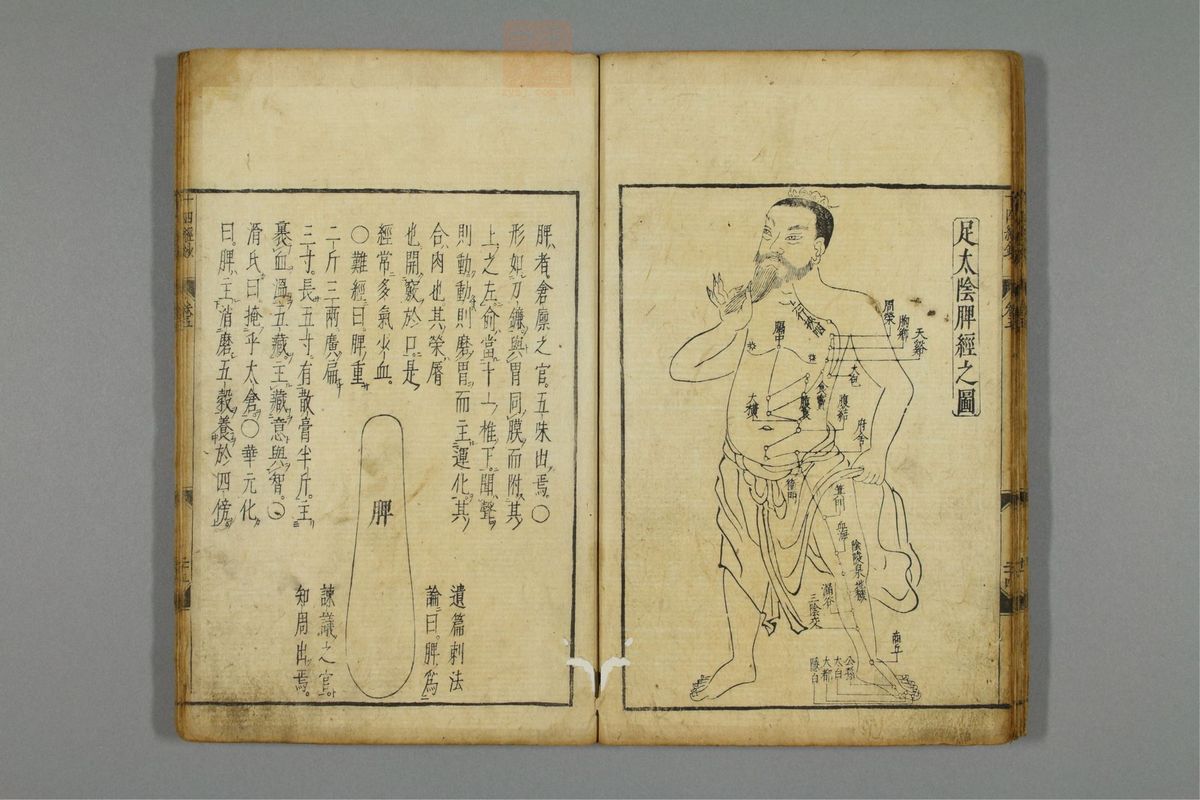 足太陰脾經之圖
周榮
胸鄉
天谿
大包
食竇
腹結
大橫
府舍
衝門
箕門
血海
陰陵泉
地機
漏谷
三陰交
商丘
公孫
太白
大都
隱白
脾者倉廩之官五味出焉〇
形如刀鎌與胃同膜而附其
上之左俞當十一椎下聞聲
則動動則磨胃而主運化其
合肉也其榮脣
也開竅於口是
經常多氣少血
〇難經曰脾重
二斤三兩廣扁
三寸長五寸有散膏半斤主
裹血溫五藏主藏意與智〇
滑氏曰掩乎太倉〇華元化
曰脾主消磨五穀養於四傍
脾
遺篇刺法
論曰脾爲
諫議之官
知周出焉
十四經